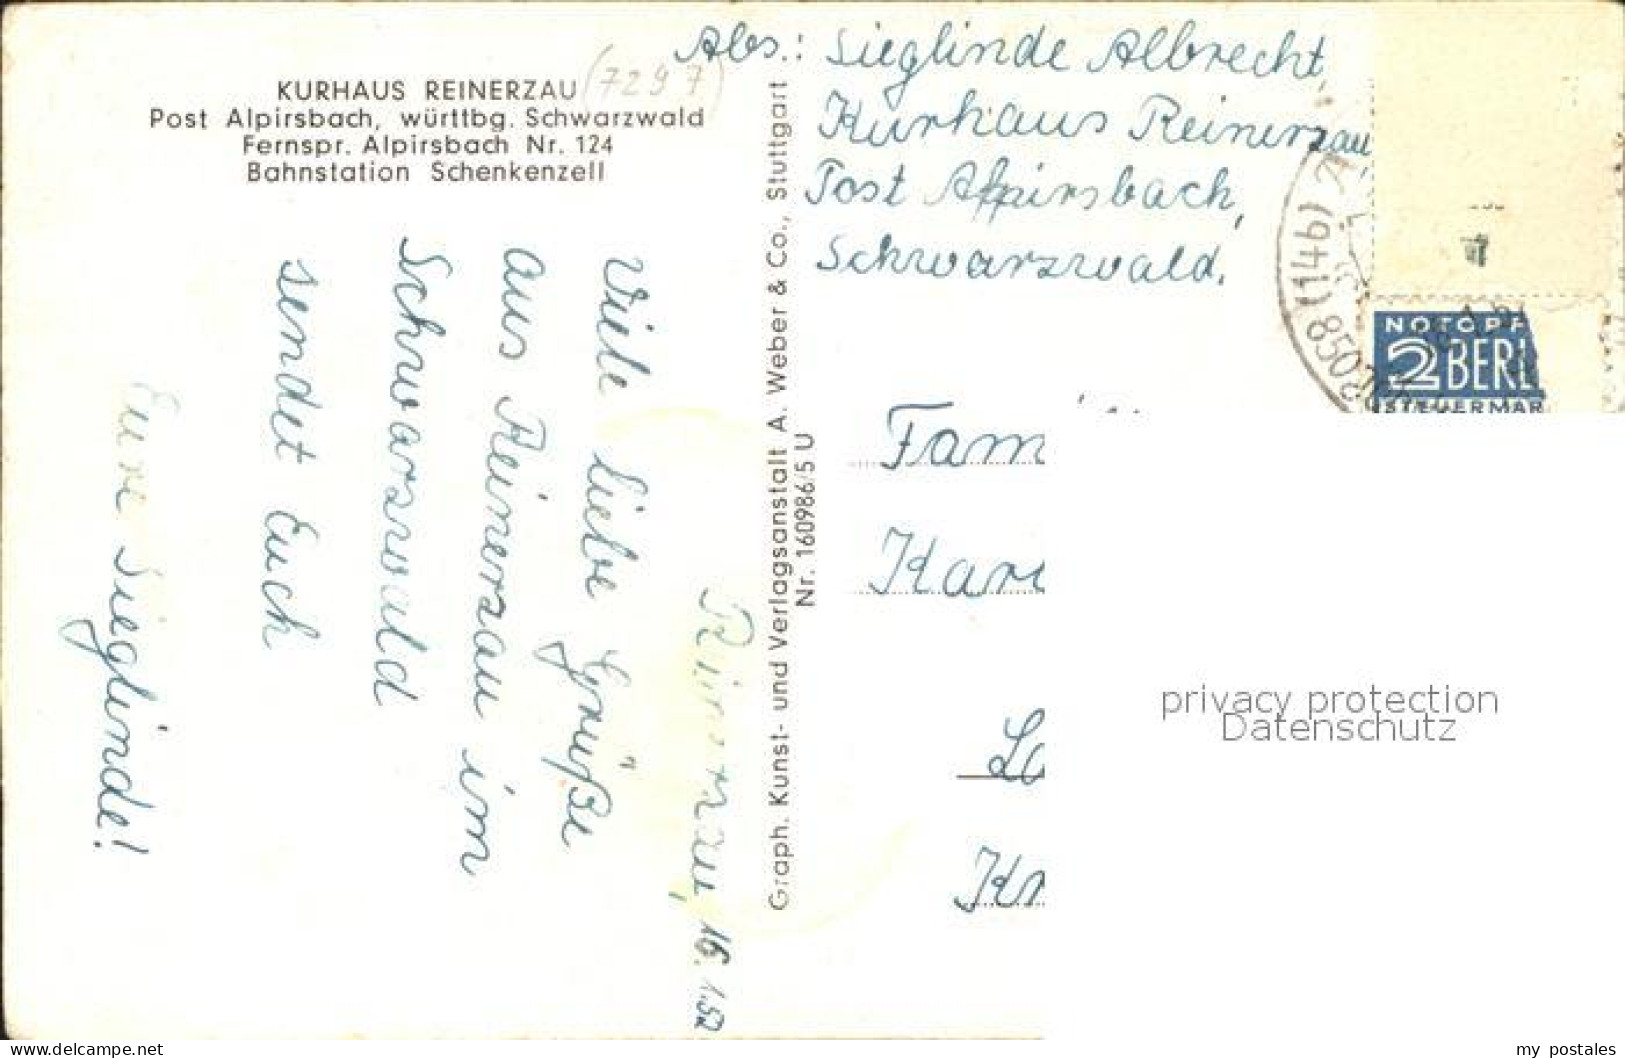 KURHAUS REINERZAU
Post Alpirsbach, württbg. Schwarzwald
Fernspr. Alpirsbach Nr. 124
Bahnstation Schenkenzell
(7297)
Abs.: Sieglinde Albrecht,
Kurhaus Reinerzau,
Post Alpirsbach,
Schwarzwald.
Reinerzau, 16.1.52
Viele liebe Grüße
aus Reinerzau im
Schwarzwald
sendet Euch
Eure Sieglinde!
Graph. Kunst- und Verlagsanstalt A. Weber & Co., Stuttgart
Nr. 160986/5 U
(14b)
NOTOPF
2 BERL
STEUERMAR
Fam
Kar
Kr
privacy protection
Datenschutz
www.delcampe.net
my_postales